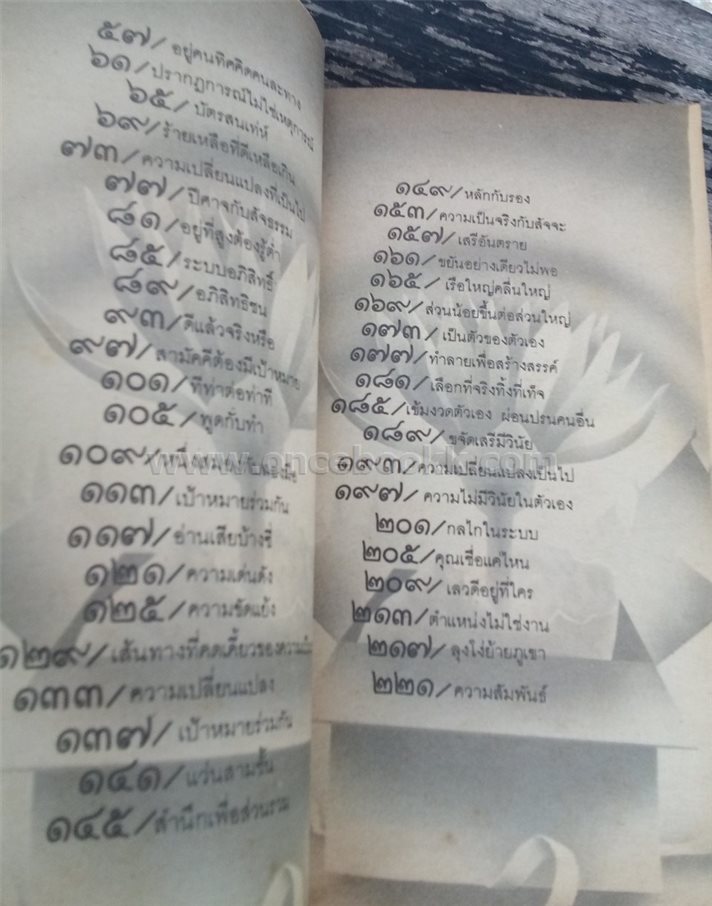 ๕๗/อยู่คนทิศคิดคนละทาง
๖๑/ปรากฏการณ์ไม่ใช่เหตุการณ์
๖๕/บัตรสนเท่ห์
๖๙/ร้ายเหลือที่ดีเหลือเกิน
๗๓/ความเปลี่ยนแปลงที่เป็นไป
๗๗/ปีศาจกับสัจธรรม
๘๑/อยู่ที่สูงต้องรู้ต่ำ
๘๕/ระบบอภิสิทธิ์
๘๙/อภิสิทธิชน
๙๓/ดีแล้วจริงหรือ
๙๗/สามัคคีต้องมีเป้าหมาย
๑๐๑/ทีท่าต่อท่าที
๑๐๕/พูดกับทำ
๑๐๙/
๑๑๓/เป้าหมายร่วมกัน
๑๑๗/อ่านเสียบ้างซี
๑๒๑/ความเด่นดัง
๑๒๕/ความขัดแย้ง
๑๒๙/เส้นทางที่คดเคี้ยวของ
๑๓๓/ความเปลี่ยนแปลง
๑๓๗/เป้าหมายร่วมกัน
๑๔๑/แว่นสามชั้น
๑๔๕/สำนึกเพื่อส่วนรวม
๑๔๙/หลักกับรอง
๑๕๓/ความเป็นจริงกับสัจจะ
๑๕๗/เสรีอันตราย
๑๖๑/ขยันอย่างเดียวไม่พอ
๑๖๕/เรือใหญ่คลื่นใหญ่
๑๖๙/ส่วนน้อยขึ้นต่อส่วนใหญ่
๑๗๓/เป็นตัวของตัวเอง
๑๗๗/ทำลายเพื่อสร้างสรรค์
๑๘๑/เลือกที่จริงทิ้งที่เท็จ
๑๘๕/เข้มงวดตัวเอง ผ่อนปรนคนอื่น
๑๘๙/ขจัดเสรีมีวินัย
๑๙๓/ความเปลี่ยนแปลงเป็นไป
๑๙๗/ความไม่มีวินัยในตัวเอง
๒๐๑/กลไกในระบบ
๒๐๕/คุณเชื่อแค่ไหน
๒๐๙/เลวดีอยู่ที่ใคร
๒๑๓/ตำแหน่งไม่ใช่งาน
๒๑๗/ลุงโง่ย้ายภูเขา
๒๒๑/ความสัมพันธ์